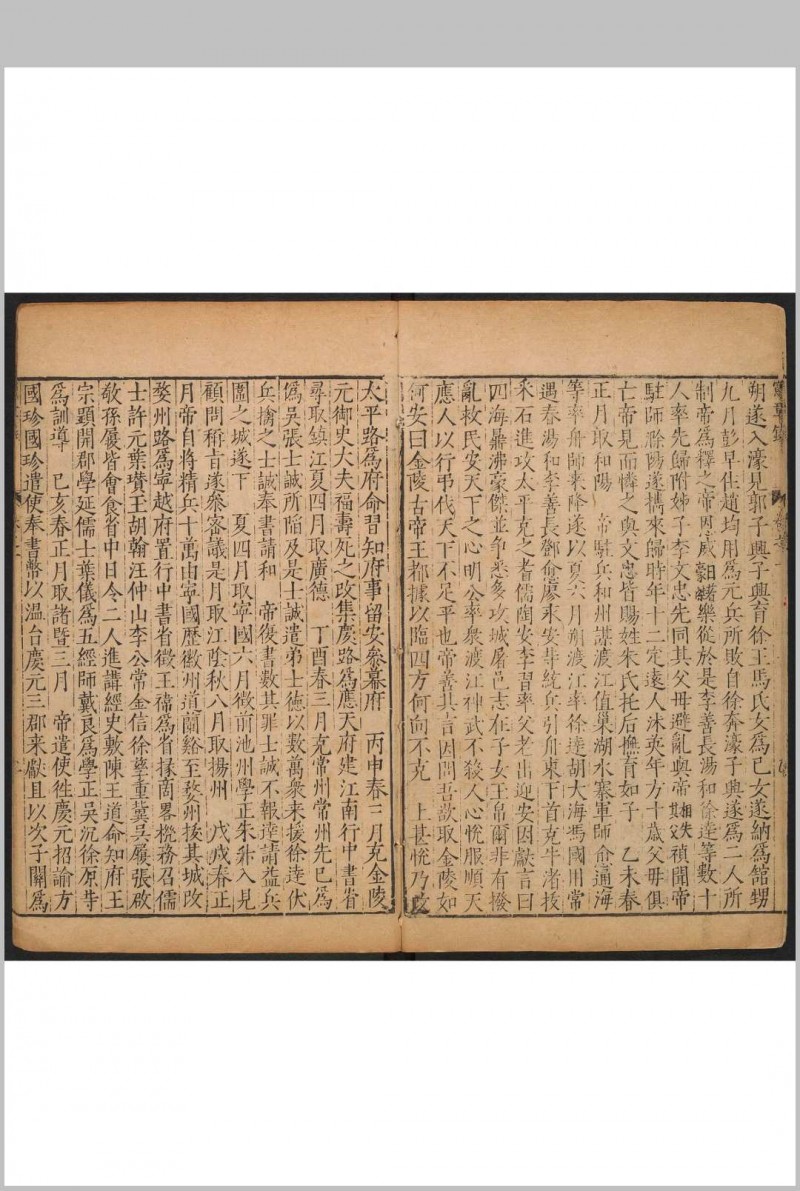 朔遂入濠見郭子興子興育徐王馬氏女爲已女遂納爲舘甥
九月彭早住趙均用爲元兵所敗自徐奔濠子興遂爲二人所
制帝爲釋之帝恩威日著豪傑樂從於是李善長湯和徐逹等數十
人率先歸附姊子李文忠先同其父母避亂與帝相失其父禎聞帝
駐師滁陽遂携來歸時年十二定遠人沐英年方十歳父母俱
亡帝見而憐之與文忠皆賜姓朱氏托后撫育如子　乙未春
正月取和陽　帝駐兵和州謀渡江值巢湖水寨軍師俞通海
等率舟師來降遂以夏六月朔渡江率徐逹胡大海馮國用常
遇春湯和李善長鄧俞廖來安等統兵引舟東下首克牛渚拔
釆石進攻太平克之耆儒陶安李習率父老出迎安因獻言曰
四海鼎沸豪傑並争悉多攻城屠邑志在子女玉帛爾非有撥
亂救民安天下之心明公率衆渡江神武不殺人心恱服順天
應人以行弔伐天下不足平也帝善其言因問吾欲取金陵如
何安曰金陵古帝王都據以臨四方何向不克　上甚恱乃改
太平路爲府命習知府事留安叅幕府　丙申春三月克金陵
元御史大夫福壽死之改集慶路爲應天府建江南行中書省
尋取鎮江夏四月取廣德　丁酉春三月克常州常州先已爲
僞吳張士誠所陷及是士誠遣弟士德以數萬衆来援徐逹伏
兵擒之士誠奉書請和　帝復書數其罪士誠不報逹請益兵
圍之城遂下　夏四月取寧國六月徵前池州學正朱升入見
顧問稱旨遂叅密議是月取江陰秋八月取揚州　戊戌春正
月帝自將精兵十萬由寧國歷徽州道蘭谿至婺州援其城改
婺州路爲寧越府置行中書省徵王禕爲省掾商畧機務召儒
士許元葉瓚王胡翰汪仲山李公常金信徐孳童冀吳履張啟
敬孫履皆會食省中日令二人進講經史敷陳王道命知府王
宗顕開郡學延儒士葉儀爲五經師戴良爲學正吳沉徐原等
爲訓導　己亥春正月取諸暨三月　帝遣使徃慶元招諭方
國珍國珍遣使奉書幣以温台慶元三郡来獻且以次子關爲